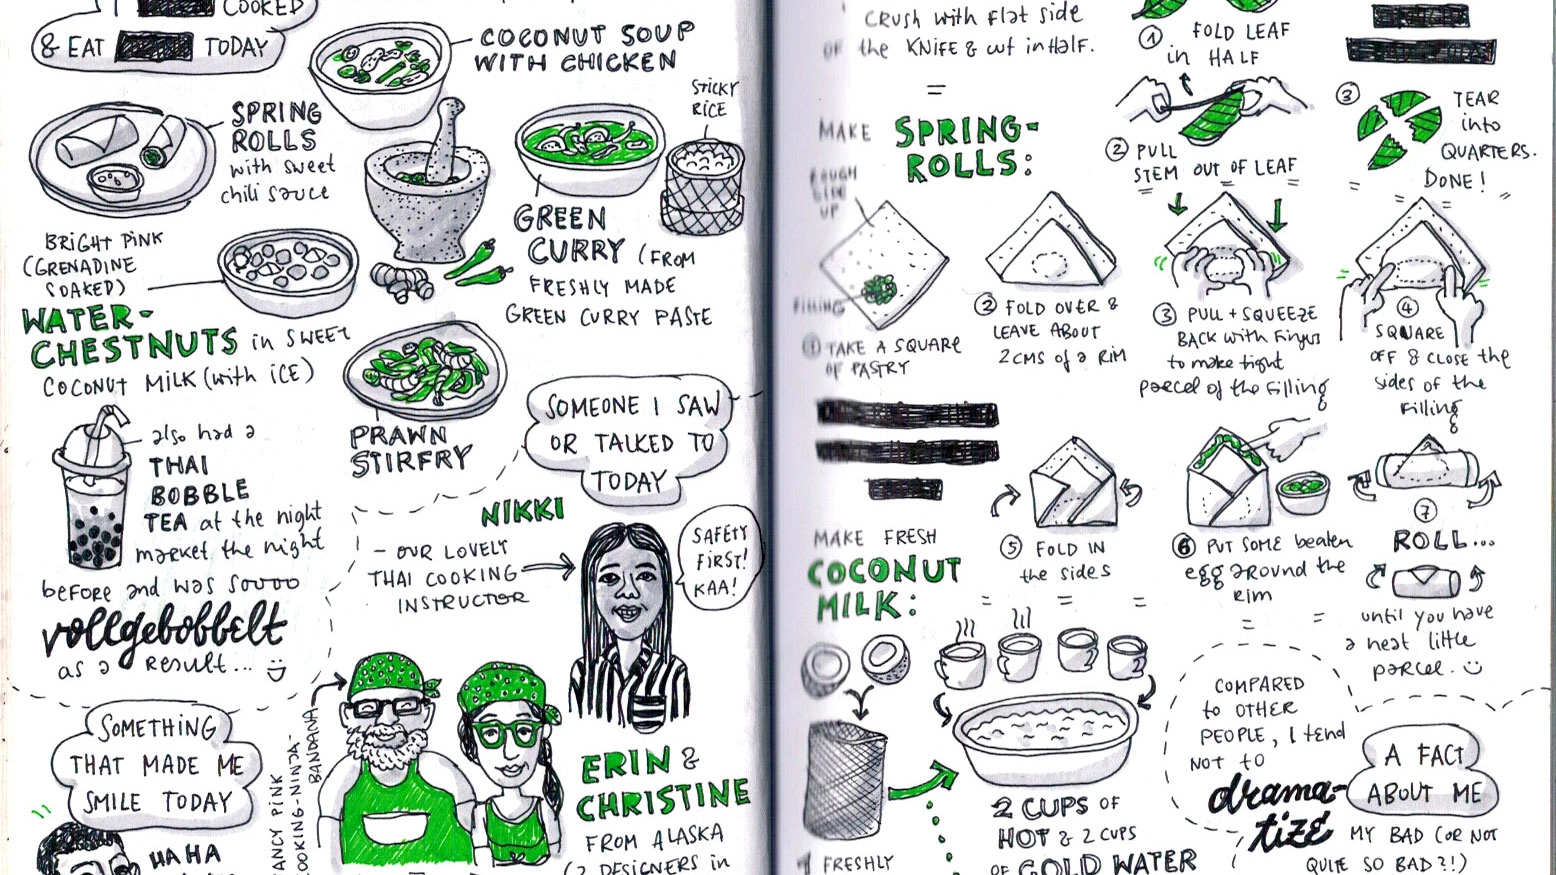 I COOKED
& EAT TODAY
COCONUT SOUP
WITH CHICKEN
SPRING
ROLLS
with sweet
chili sauce
STICKY
RICE
GREEN
CURRY (FROM
FRESHLY MADE
GREEN CURRY PASTE
BRIGHT PINK
(GRENADINE
SOAKED)
WATER-
CHESTNUTS in SWEET
COCONUT MILK (with iCE)
PRAWN
STIRFRY
also had a
THAI
BOBBLE
TEA at the night
market the night
before and was soooo
vollgebobbelt
as a result...
SOMEONE I SAW
OR TALKED TO
TODAY
NIKKI
- OUR LOVELY
THAI COOKING
INSTRUCTOR
SAFETY
FIRST!
KAA!
SOMETHING
THAT MADE ME
SMILE TODAY
HAHA
FANCY PINK
COOKING-NINJA-
BANDANA
ERIN &
CHRISTINE
FROM ALASKA
(2 DESIGNERS in
CRUSH with flat side
OF the KNIFE & cut in half.
=
MAKE SPRING-
ROLLS:
ROUGH
SIDE
UP
FILLING
① TAKE A SQUARE
OF PASTRY
② FOLD OVER &
LEAVE ABOUT
2CMS of a RIM
③ PULL + SQUEEZE
BACK with Fingers
to make tight
parcel of the Filling
④
SQUARE
OFF & CLOSE the
sides of the
Filling
⑤ FOLD IN
the sides
⑥ PUT SOME beaten
egg around the
RIM
⑦
ROLL...
until you have
a neat little
parcel.
① FOLD LEAF
in HALF
② PULL
STEM OUT OF LEAF
③ TEAR
into
QUARTERS.
DONE!
MAKE FRESH
COCONUT
MILK:
1 FRESHLY
2 CUPS OF
HOT & 2 CUPS
OF COLD WATER
COMPARED
to OTHER
PEOPLE, I tend
NOT to
drama-
tize
A FACT
ABOUT ME
MY BAD (OR NOT
QUITE SO BAD?!)